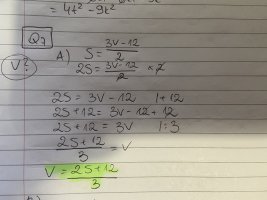 = 4t² - 9t²
Q7
V?
A) S = 3V-12 / 2
2S = 3V-12 / 2 ×2
2S = 3V - 12 | +12
2S+12 = 3V - 12 + 12
2S+12 = 3V | : 3
2S+12 / 3 = V
V = 2S+12 / 3